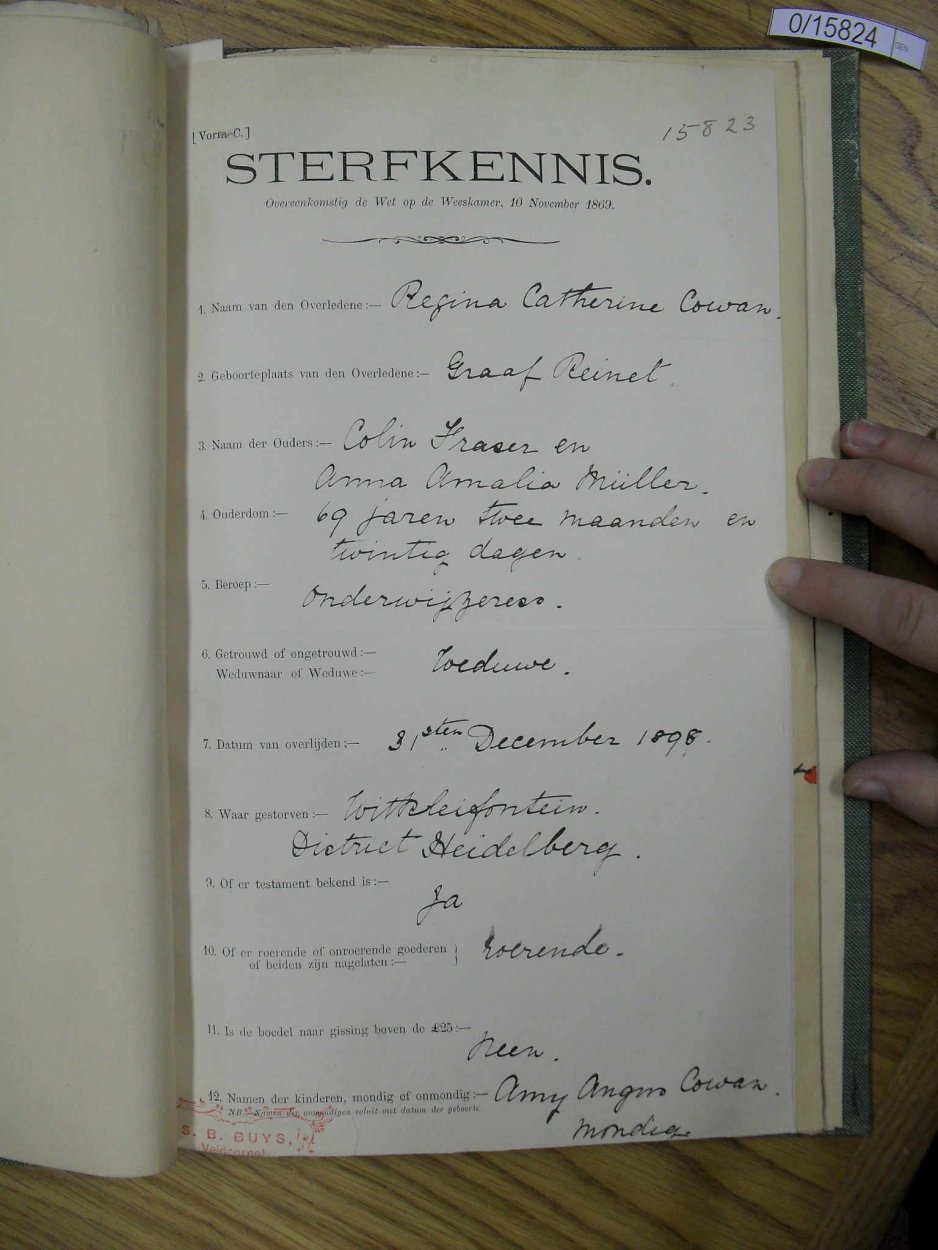 0/15824
GEN
[ Vorm C. ]
15823
STERFKENNIS.
Overeenkomstig de Wet op de Weeskamer, 10 November 1869.
1. Naam van den Overledene:— Regina Catherine Cowan.
2. Geboorteplaats van den Overledene:— Graaf Reinet.
3. Naam der Ouders:— Colin Fraser en
Anna Amalia Müller.
4. Ouderdom:— 69 jaren twee maanden en
twintig dagen.
5. Beroep:—
Onderwijzeres.
6. Getrouwd of ongetrouwd:—
Weduwnaar of Weduwe:— Weduwe.
7. Datum van overlijden:— 31sten December 1898.
8. Waar gestorven:— Witkleifontein.
District Heidelberg.
9. Of er testament bekend is:—
Ja
10. Of er roerende of onroerende goederen
of beiden zijn nagelaten:— } roerende.
11. Is de boedel naar gissing boven de £25:—
Neen.
12. Namen der kinderen, mondig of onmondig:— Amy Angus Cowan.
NB.—Namen der onmondigen voluit met datum der geboorte
mondig.
S. B. BUYS,
Veldcornet